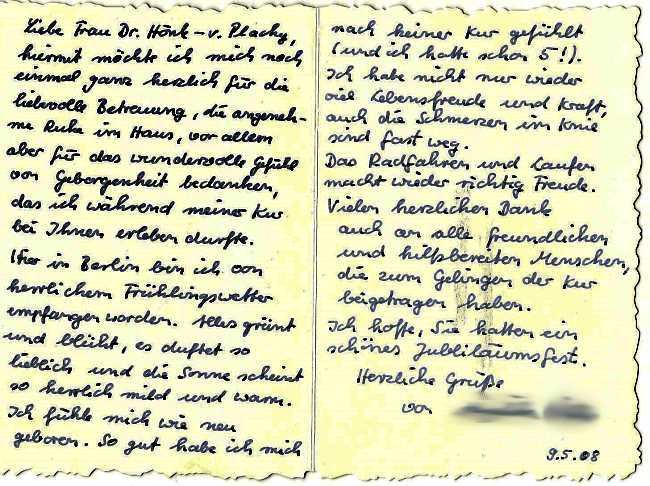 Liebe Frau Dr. Hönk-v. Plachy,
hiermit möchte ich mich noch
einmal ganz herzlich für die
liebevolle Betreuung, die angeneh-
me Ruhe im Haus, vor allem
aber für das wundervolle Gefühl
von Geborgenheit bedanken,
das ich während meiner Kur
bei Ihnen erleben durfte.
Hier in Berlin bin ich von
herrlichem Frühlingswetter
empfangen worden. Alles grünt
und blüht, es duftet so
lieblich und die Sonne scheint
so herrlich mild und warm.
Ich fühle mich wie neu
geboren. So gut habe ich mich
nach keiner Kur gefühlt
(und ich hatte schon 5!).
Ich habe nicht nur wieder
viel Lebensfreude und Kraft,
auch die Schmerzen im Knie
sind fast weg.
Das Radfahren und Laufen
macht wieder richtig Freude.
Vielen herzlichen Dank
auch an alle freundlichen
und hilfsbereiten Menschen,
die zum Gelingen der Kur
beigetragen haben.
Ich hoffe, Sie hatten ein
schönes Jubiläumsfest.
Herzliche Grüße
von
9.5.08